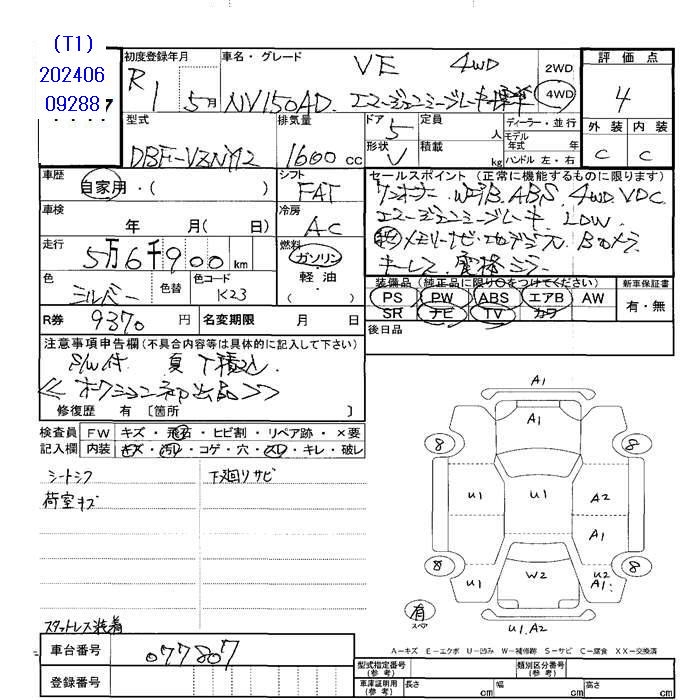 (T1)
202406
09288
初度登録年月 車名・グレード VE 4WD 2WD 評価点
R1 5月 NV150AD エマージェンシーブレーキ 標準 4WD 4
型式 排気量 ドア 5 定員 人 ディーラー・並行 外装 内装
DBF-VZNY12 1600cc 形状 V 積載 kg モデル年式 年 ハンドル 左・右 C C
車歴 シフト セールスポイント(正常に機能するものに限ります)
自家用・( ) FAT ワンオーナー WエアB. ABS. 4WD. VDC.
車検 冷房 エマージェンシーブレーキ LDW.
年 月( 日) AC メモリーナビ. Bカメラ
走行 燃料 キーレス. 電格ミラー
5万6千900km ガソリン
色 色替 色コード 軽油・( ) 装備品(純正品に限り○をつけてください) 新車保証書
シルバー K23 PS PW ABS エアB AW 有・無
R券 9370円 名変期限 月 日 SR ナビ TV カワ
後日品
注意事項申告欄(不具合内容等は具体的に記入して下さい)
S/W付 夏T積込
<<オークション初出品>>
修復歴 有〔箇所 〕
検査員 FW キズ・飛石・ヒビ割・リペア跡・×要
記入欄 内装 キズ・汚レ・コゲ・穴・スレ・キレ・破レ
シートシワ 下廻りサビ
荷室キズ
スタットレス装着
A1
A1
8 8
U1 U1 A2
A1
8 8
U1 W2 U2
A1
有
スペア
U1.A2
A−キズ E−エクボ U−凹み W−補修跡 S−サビ C−腐食 XX−交換済
車台番号 077807
登録番号
型式指定番号(参考) 類別区分番号(参考)
車庫証明用(参考) 長さ cm 幅 cm 高さ cm